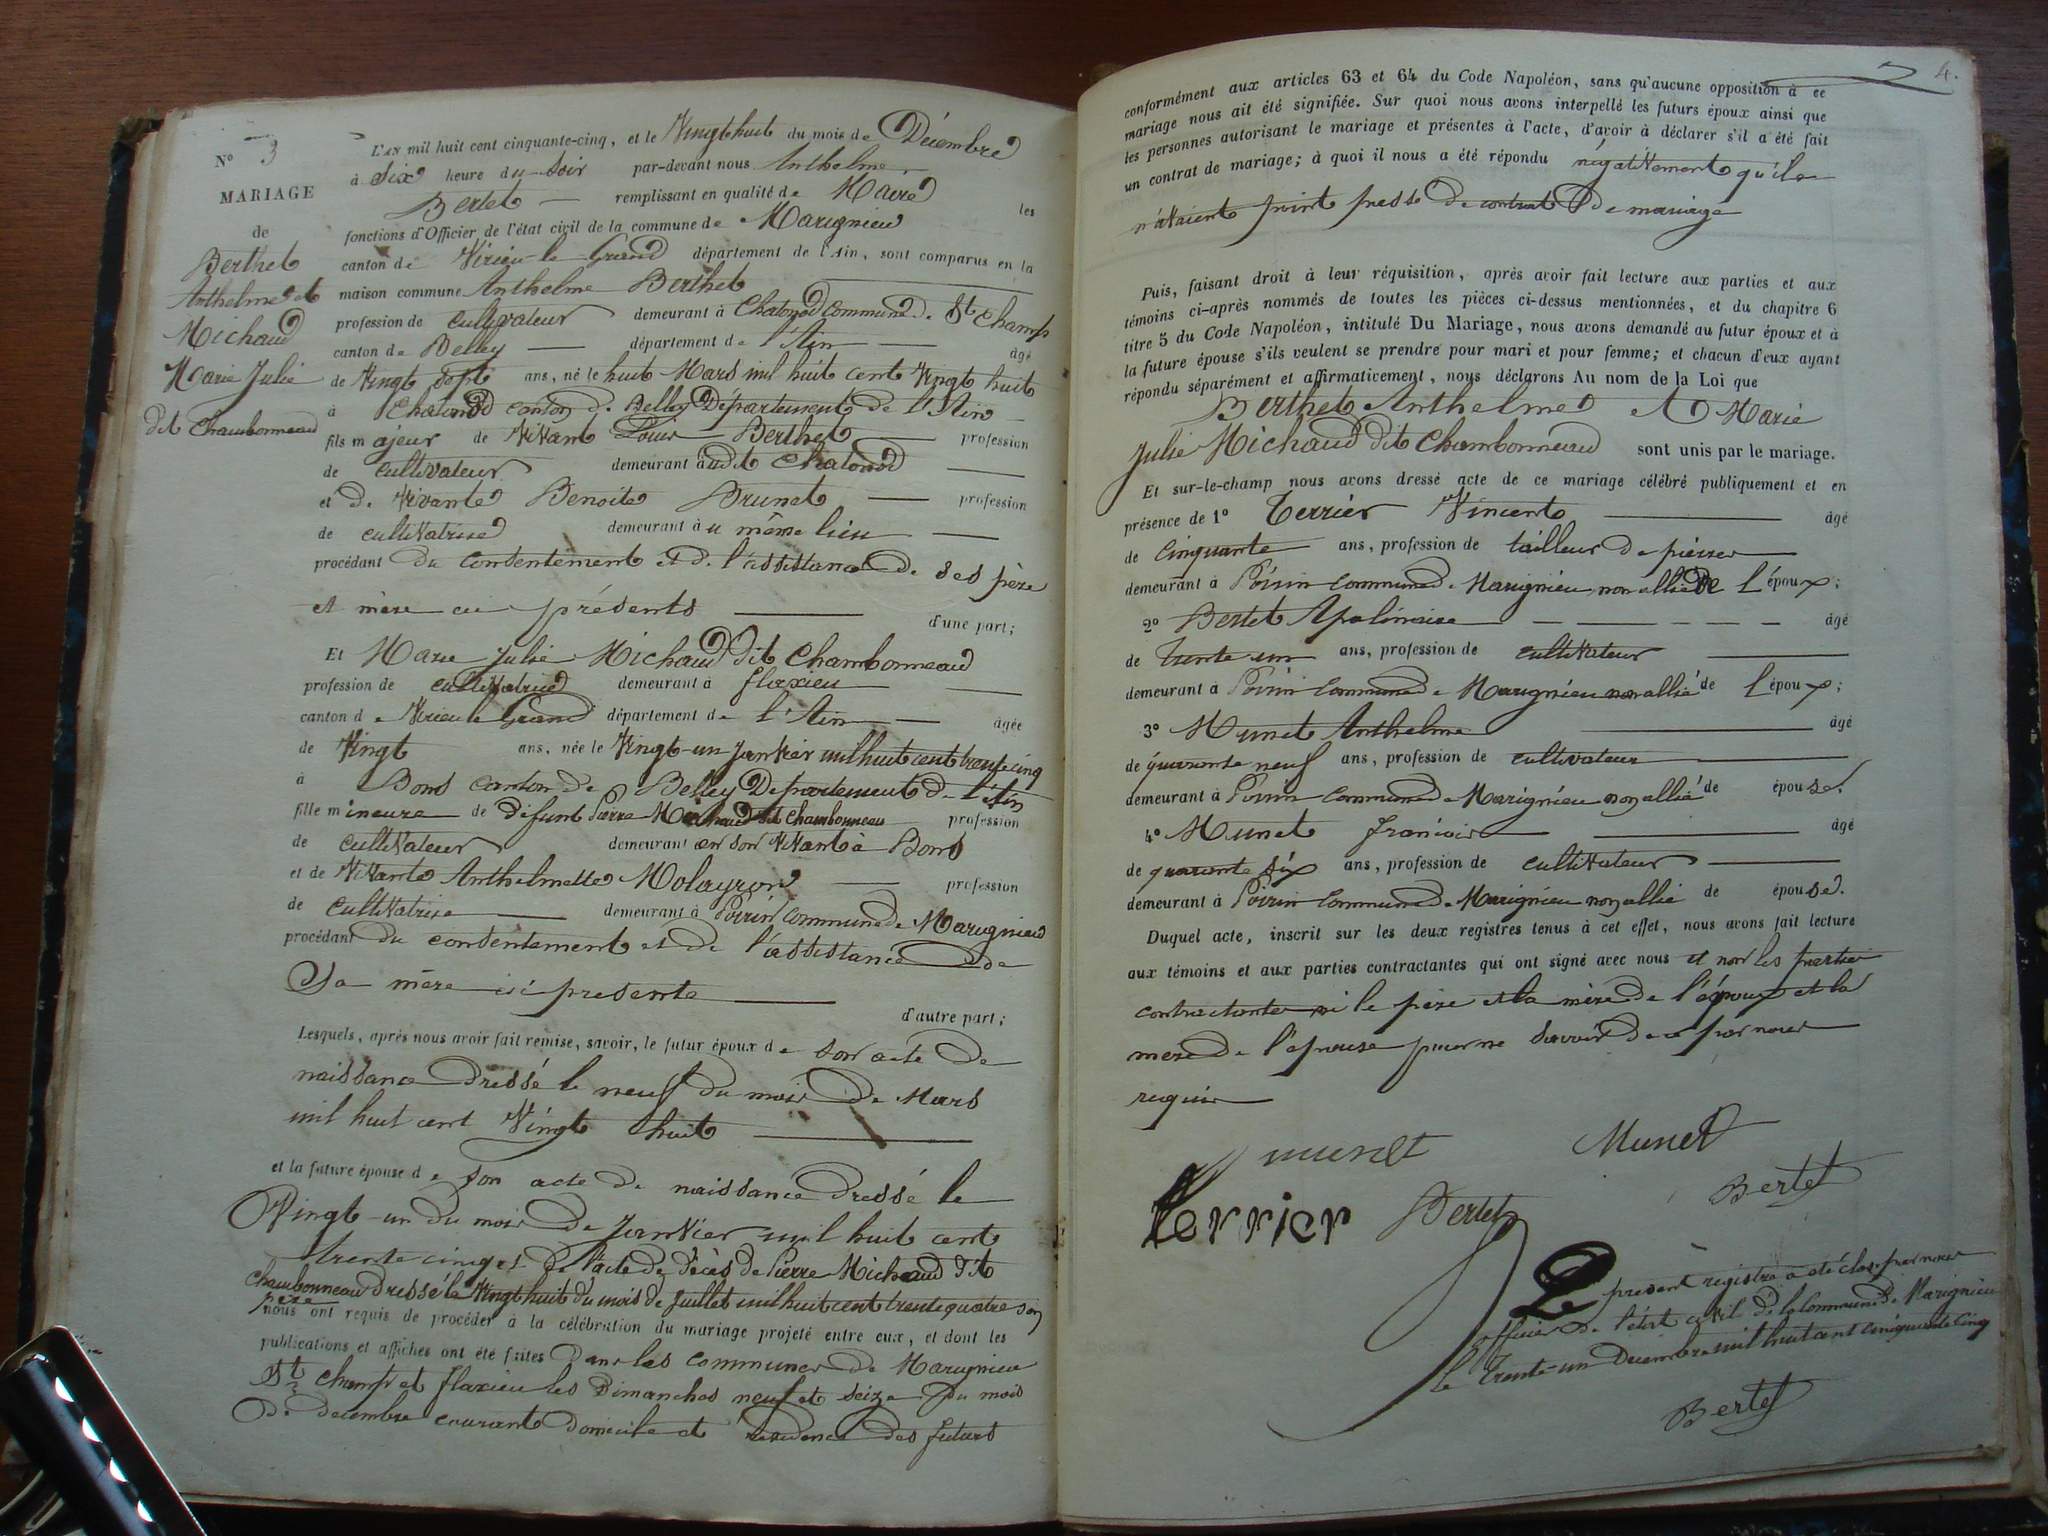 N° 3
MARIAGE
de
Berthet
Anthelme et
Michaud
Marie Julie
dit Chambonneau
L'AN mil huit cent cinquante-cinq, et le Vingt huit du mois de Décembre
à Six heure du soir par-devant nous Anthelme
Bertet remplissant en qualité de Maire les
fonctions d'Officier de l'état civil de la commune de Marignieu
canton de Virieu-le-Grand département de l'Ain, sont comparus en la
maison commune Anthelme Berthet
profession de cultivateur demeurant à Chatonod commune de St Champ
canton de Belley département de l'Ain âgé
de Vingt Sept ans, né le huit Mars mil huit cent Vingt huit
à Chatonod canton de Belley Département de l'Ain
fils majeur de Vivant Louis Berthet profession
de cultivateur demeurant audit Chatonod
et de Vivante Benoite Brunet profession
de cultivatrice demeurant au même lieu
procédant du consentement et de l'assistance de ses père
et mère ici présents d'une part;
Et Marie Julie Michaud dit Chambonneau
profession de cultivatrice demeurant à flaxieu
canton de Virieu le Grand département de l'Ain âgée
de Vingt ans, née le Vingt-un Janvier mil huit cent trente cinq
à Bons canton de Belley Département de l'Ain
fille mineure de défunt Pierre Michaud dit Chambonneau profession
de cultivateur demeurant en son vivant à Bons
et de Vivante Anthelmette Molayron profession
de cultivatrice demeurant à Poirin commune de Marignieu
procédant du consentement et de l'assistance de
Sa mère ici presente
d'autre part;
Lesquels, après nous avoir fait remise, savoir, le futur époux de son acte de
naissance dressé le neuf du mois de Mars
mil huit cent Vingt huit
et la future épouse de son acte de naissance dressé le
Vingt-un du mois de Janvier mil huit cent
trente cinq et de l'acte de décès de Pierre Michaud dit
Chambonneau dressé le Vingt huit du mois de Juillet mil huit cent trente quatre son
père
nous ont requis de procéder à la célébration du mariage projeté entre eux, et dont les
publications et affiches ont été faites dans les communes de Marignieu
St Champ et flaxieu les Dimanches neuf et seize du mois
de decembre courant domicile et résidence des futurs
4.
conformément aux articles 63 et 64 du Code Napoléon, sans qu'aucune opposition à ce
mariage nous ait été signifiée. Sur quoi nous avons interpellé les futurs époux ainsi que
les personnes autorisant le mariage et présentes à l'acte, d'avoir à déclarer s'il a été fait
un contrat de mariage; à quoi il nous a été répondu négativement qu'ils
n'avaient point passé de contrat de mariage
Puis, faisant droit à leur réquisition, après avoir fait lecture aux parties et aux
témoins ci-après nommés de toutes les pièces ci-dessus mentionnées, et du chapitre 6
titre 5 du Code Napoléon, intitulé Du Mariage, nous avons demandé au futur époux et à
la future épouse s'ils veulent se prendre pour mari et pour femme; et chacun d'eux ayant
répondu séparément et affirmativement, nous déclarons Au nom de la Loi que
Berthet Anthelme et Marie
Julie Michaud dit Chambonneau sont unis par le mariage.
Et sur-le-champ nous avons dressé acte de ce mariage célébré publiquement et en
présence de 1° Terrier Vincent âgé
de Cinquante ans, profession de tailleur de pierres
demeurant à Poirin commune de Marignieu non allié de l'époux;
2° Bertet Apolinaire âgé
de trente un ans, profession de cultivateur
demeurant à Poirin commune de Marignieu non allié de l'époux;
3° Munet Anthelme âgé
de quarante neuf ans, profession de cultivateur
demeurant à Poirin commune de Marignieu non allié de épouse.
4° Munet francois âgé
de quarante six ans, profession de cultivateur
demeurant à Poirin commune de Marignieu non allié de épouse.
Duquel acte, inscrit sur les deux registres tenus à cet effet, nous avons fait lecture
aux témoins et aux parties contractantes qui ont signé avec nous et non les parties
contractantes ni le père et la mère de l'époux et la
mere de l'epouse pour ne savoir de ce par nous
requis
munet Munet
Terrier Bertet Bertet
Le present registre a été clos par nous
officier de l'état civil de la Commune de Marignieu
le trente-un Decembre mil huit cent cinquante cinq
Bertet